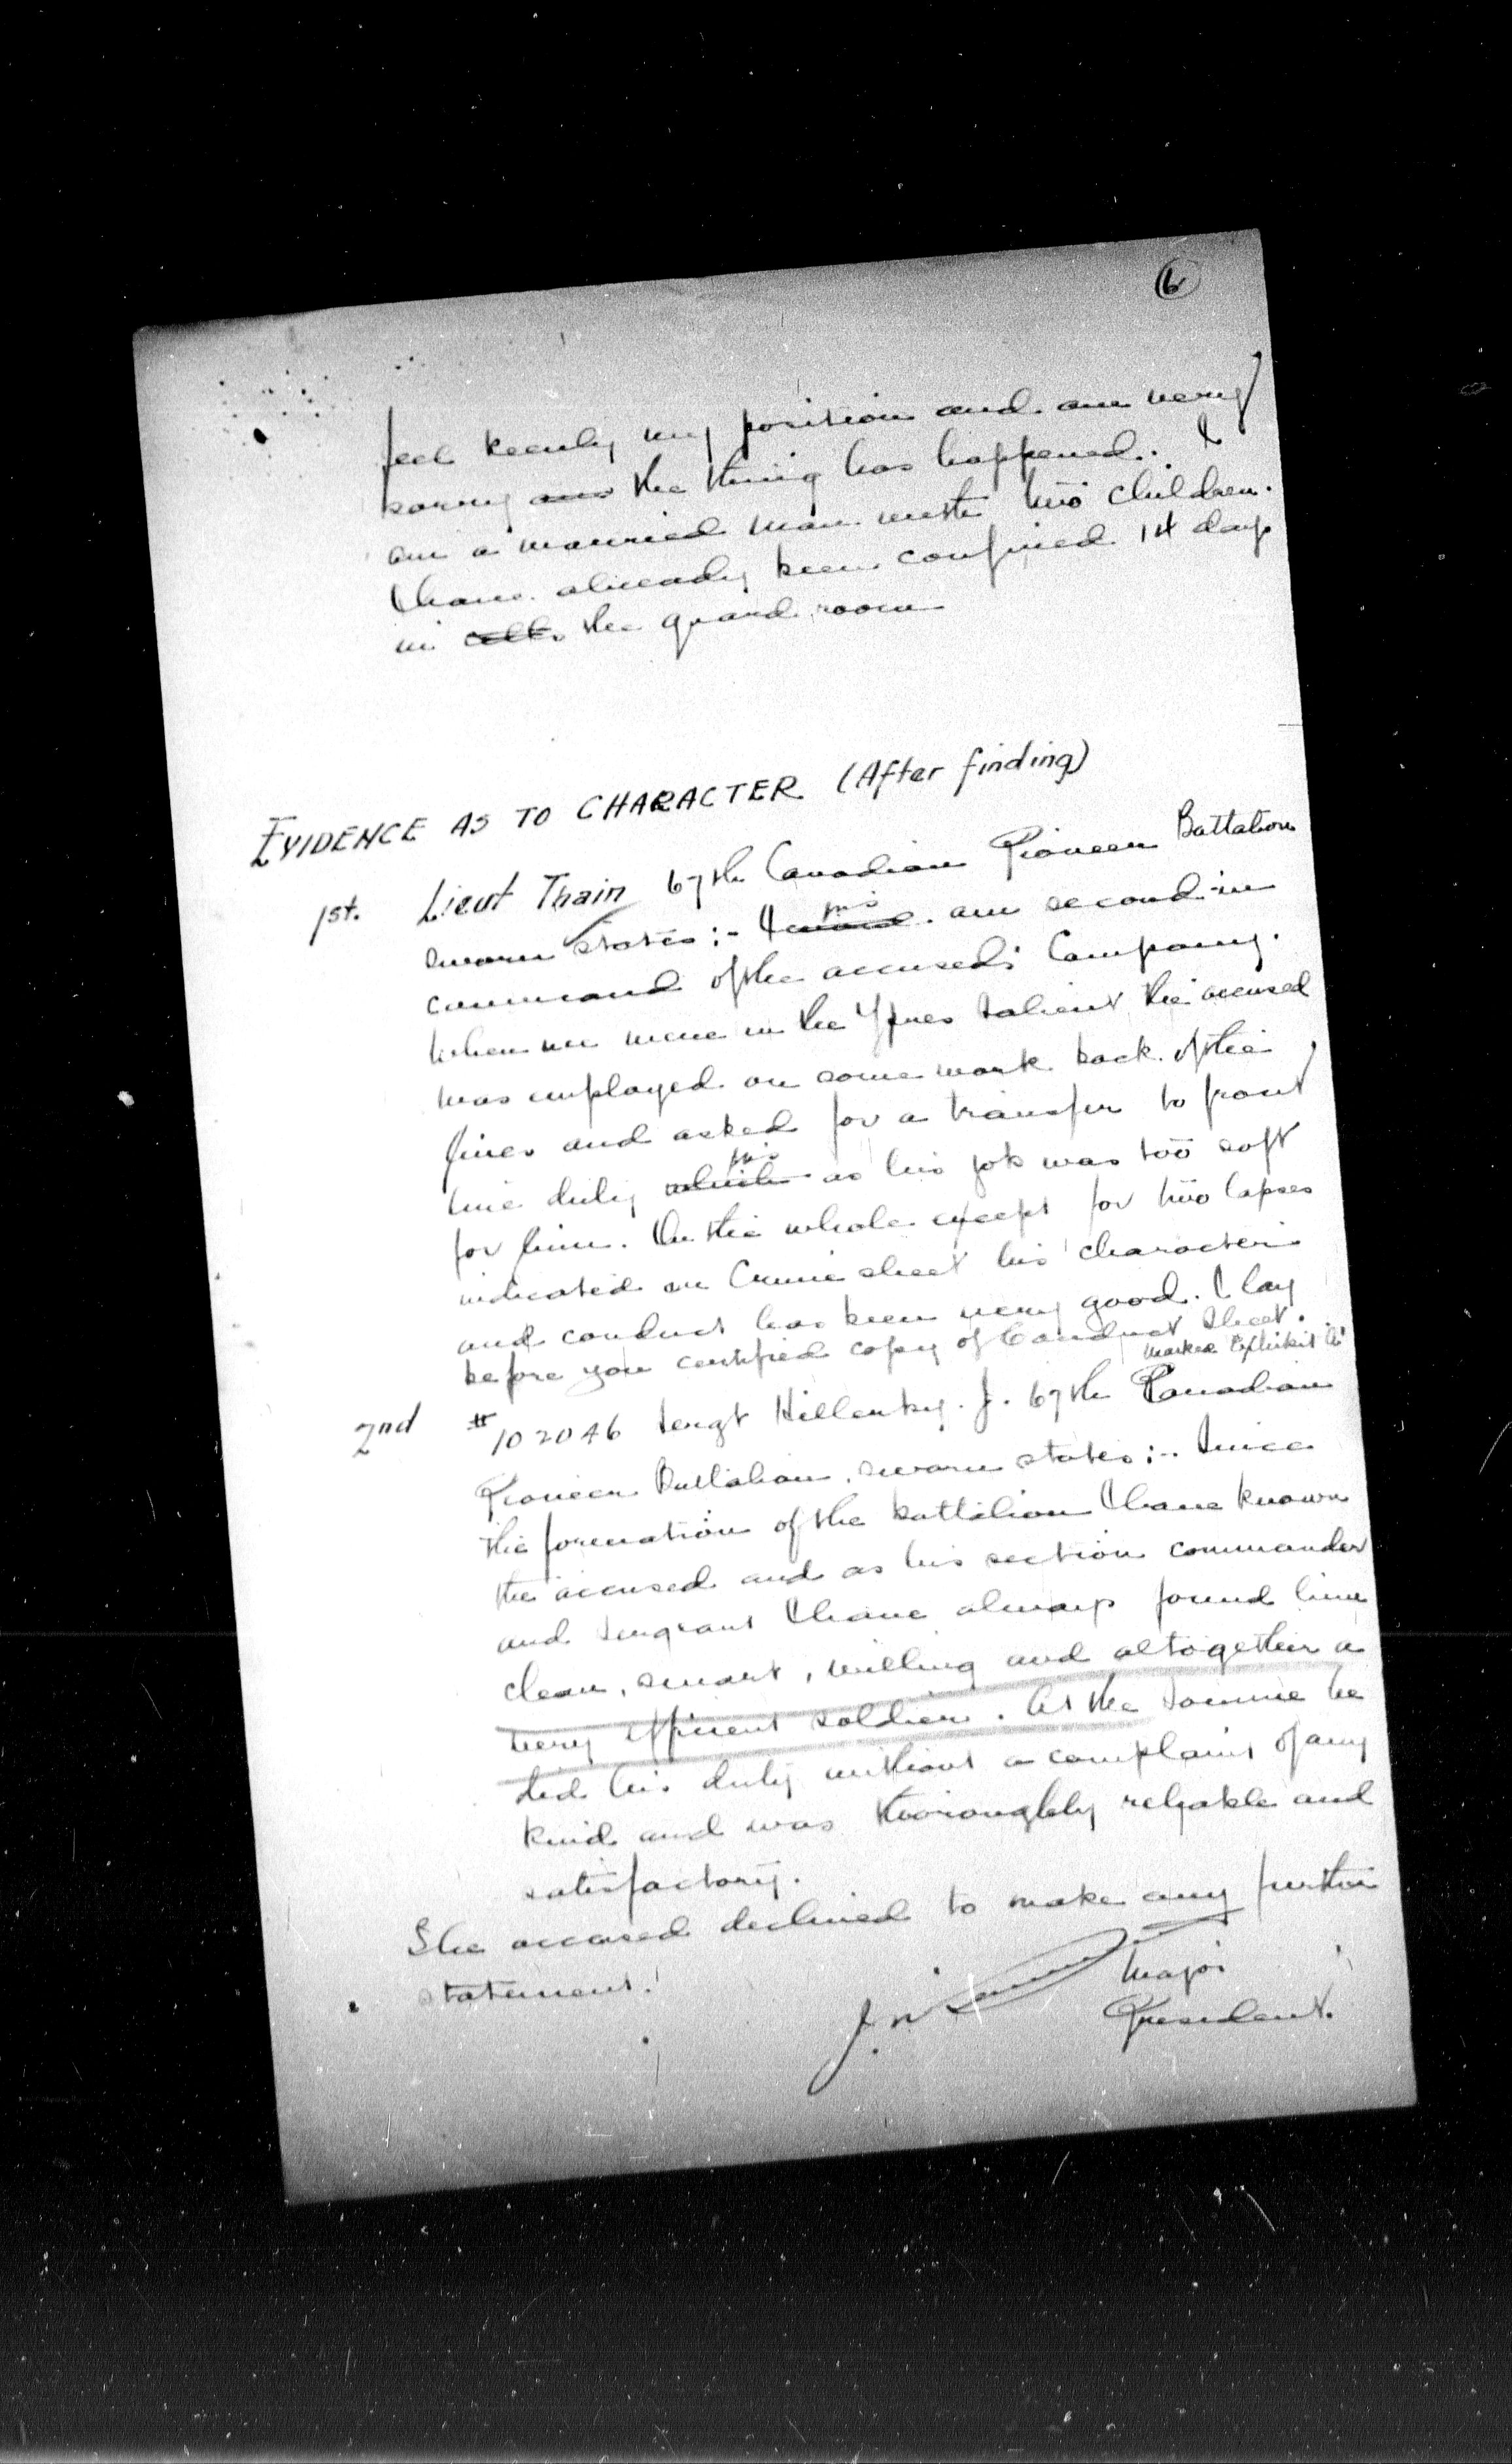 6
feel keenly my position and am very
sorry the thing has happened. I
am a married man with two children.
I have already been confined 14 days
in cells the guard room
EVIDENCE AS TO CHARACTER (After finding)
1st. Lieut Thain 67th Canadian Pioneer Battalion
sworn states :- I am second in
command of the accused's Company.
When we were in the Ypres Salient the accused
was employed on some work back of the
lines and asked for a transfer to front
line duty which as his job was too soft
for him. On the whole except for two lapses
indicated on Crime sheet his character
and conduct has been very good. I lay
before you certified copy of Conduct Sheet.
marked Exhibit
2nd #102046 Sergt Hillenby. J. 67th Canadian
Pioneer Battalion. sworn states :- Since
the formation of the battalion I have known
the accused and as his section commander
and Sergeant I have always found him
clean, smart, willing and altogether a
very efficient soldier. At the Somme he
did his duty without a complaint of any
kind and was thoroughly reliable and
satisfactory.
The accused declined to make any further
statement.
Major
President.